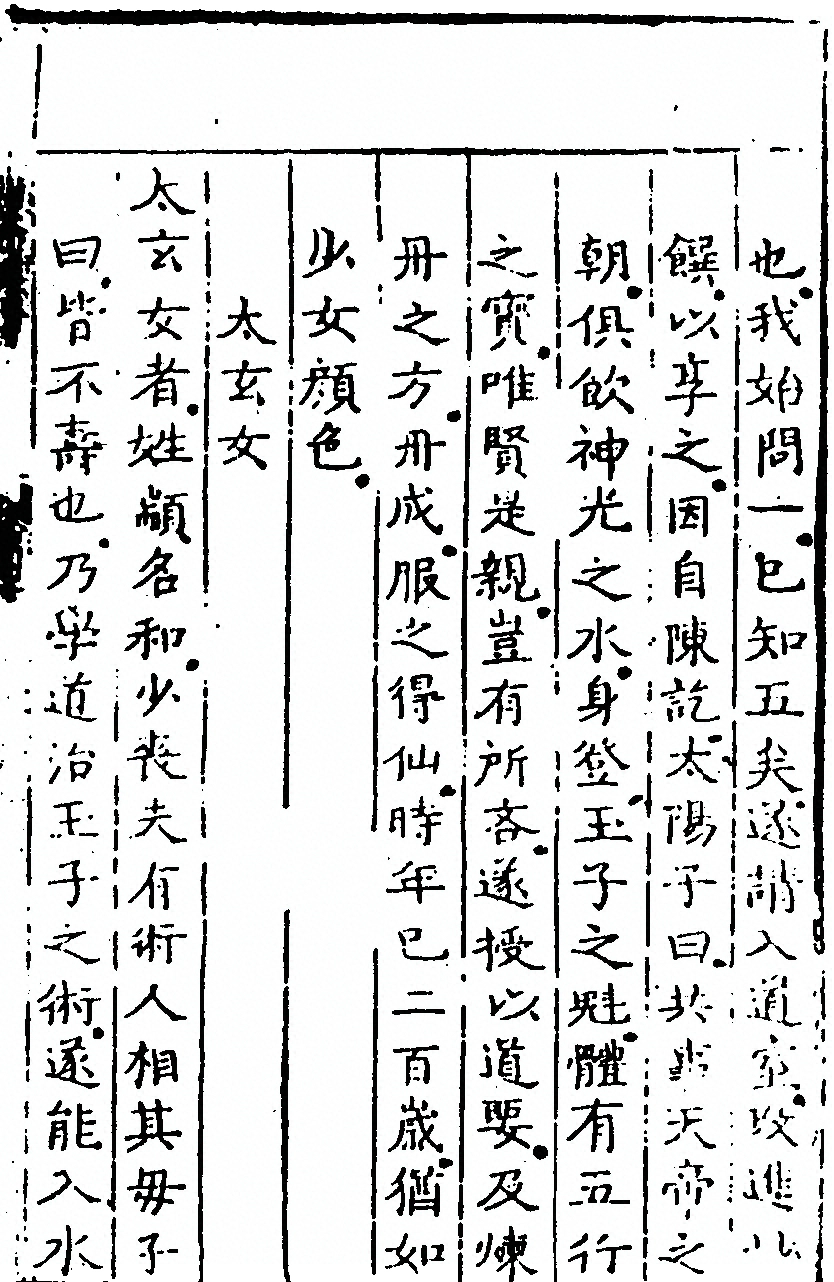 也我始問一已知五矣遂請入道室改進八
饌以享之因自陳訖太陽子曰共事天帝之
朝俱飲神光之水身登玉子之魁體有五行
之寶唯賢是親豈有所吝遂授以道要及煉
丹之方丹成服之得仙時年已二百歲猶如
少女顔色
太玄女
太玄女者姓顓名和少喪夫有術人相其毋子
曰皆不壽也乃學道治玉子之術遂能入水